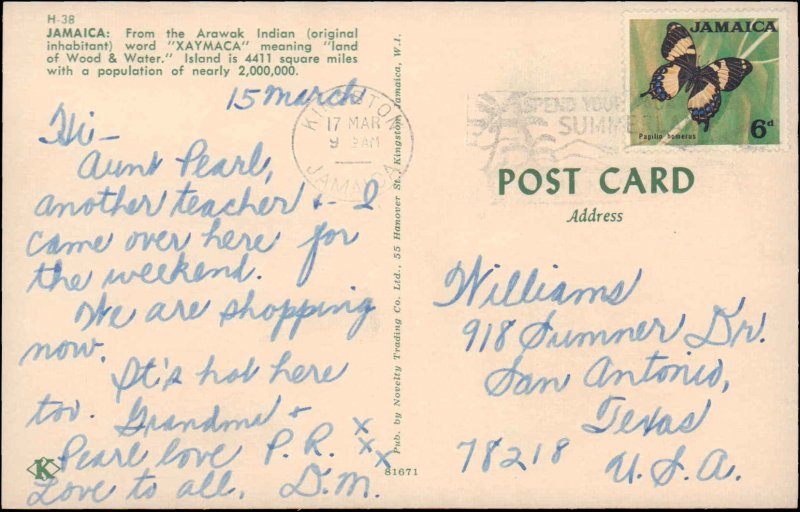 H-38
JAMAICA: From the Arawak Indian (original
inhabitant) word "XAYMACA" meaning "land
of Wood & Water." Island is 4411 square miles
with a population of nearly 2,000,000.
15 March
Hi-
Aunt Pearl,
another teacher & I
came over here for
the weekend.
We are shopping
now.
It's hot here
too. Grandma &
Pearl love P.R. x
x x
Love to all, D.M.
K
Pub. by Novelty Trading Co. Ltd., 55 Hanover St., Kingston, Jamaica, W.I.
81671
KINGSTON
17 MAR
9 AM
JAMAICA
SPEND YOUR
SUMMER
JAMAICA
Papilio homerus
6d
POST CARD
Address
Williams
918 Sumner Dr.
San Antonio,
Texas
78218 U.S.A.